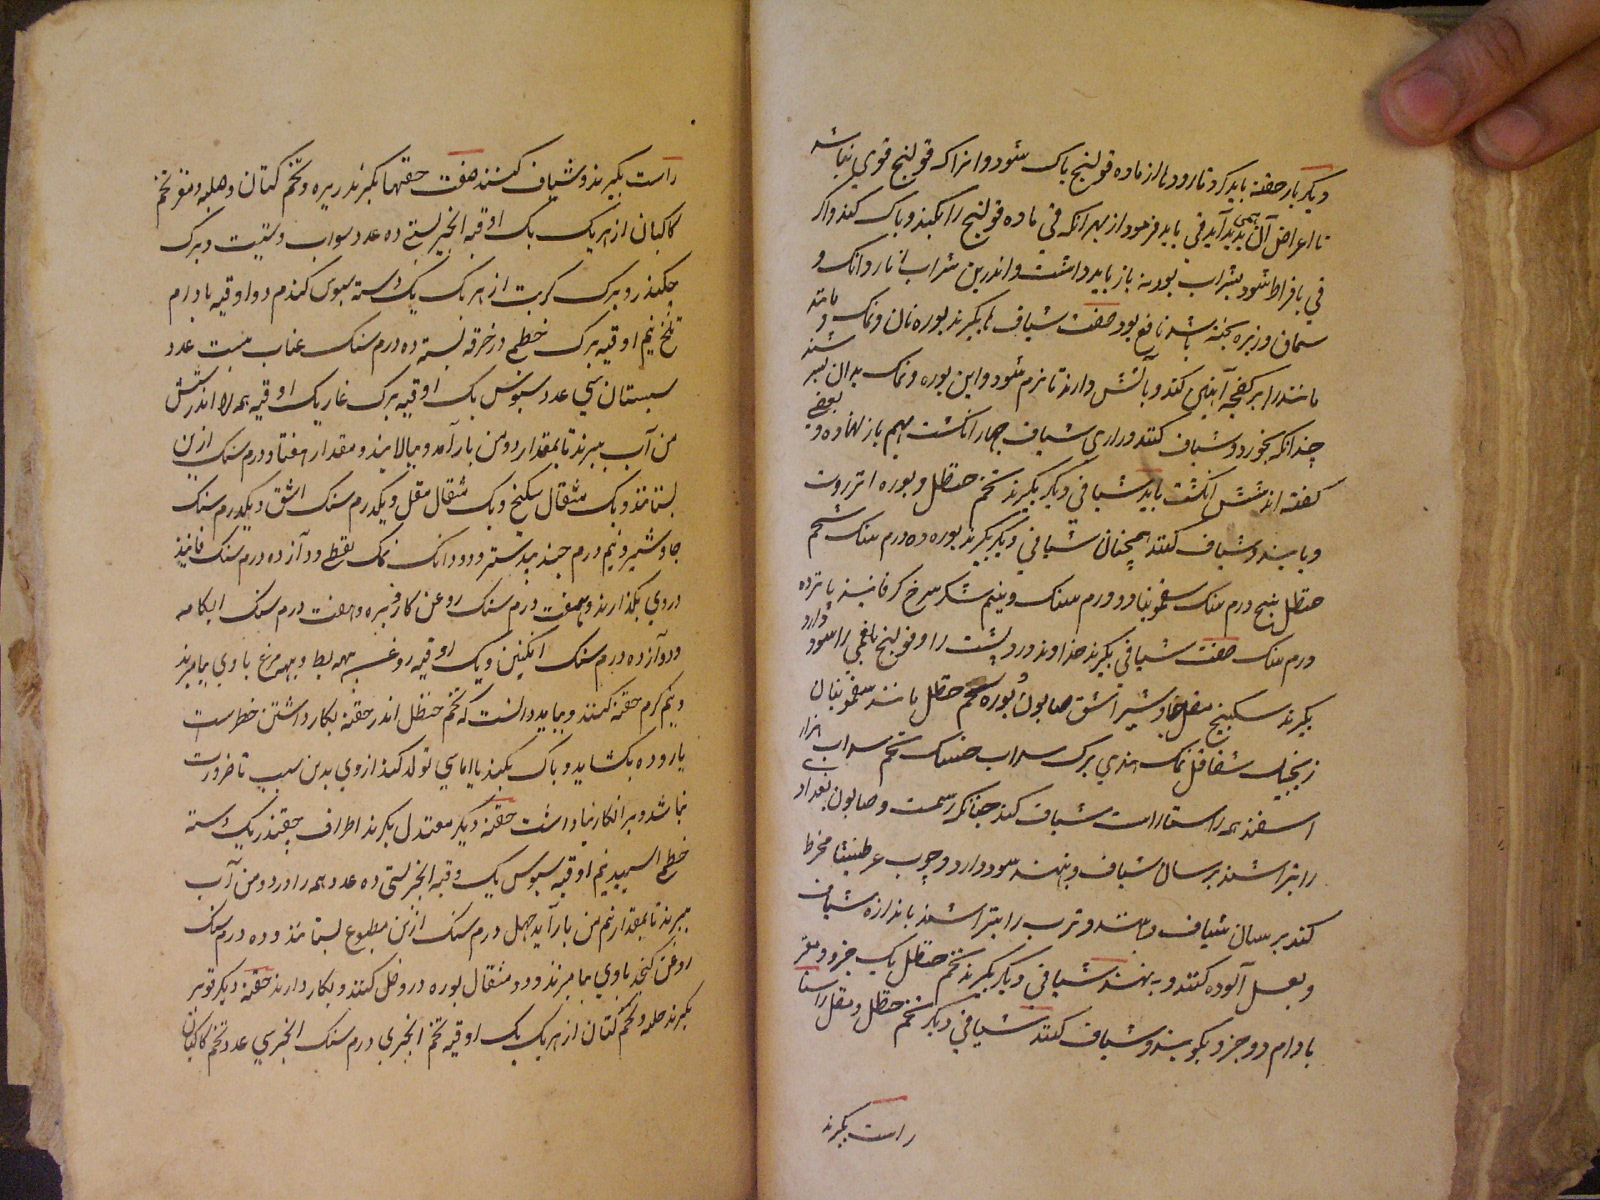 دیکر بار حقنه باید کرد تا رودها از ماده قولنج پاک شود و انراک قولنج قوی نباشد
تا اعراض آن همی پدید آید قی باید فرمود از بهر انکه قی ماده قولنج را بکند و پاک کند و اکر
قی بافراط شود بشراب پودنه باز باید داشت و اندرین شراب انار دانک و
سماق و زیره پخته باشد نافع بود صفت شیاف ها بکیرند بوره نان و نمک
مانند را بر کفچه آهنین کند و بآتش دارند تا نرم شود و این بوره و نمک بدان
چندانکه بخورد و شیاف کنند درازی شیاف چهار انکشت بهم باز نهاده و بعضی
کفته اند شش انکشت باید شیافی دیکر بکیرند تخم حنظل و بوره انزروت
و شیاف کنند همچنان شیافی دیکر بکیرند بوره ده درم سنک شحم
حنظل پنج درم سنک سقمونیا دو درم سنک و نیم شکر سرخ کر فانیذ پانزده
درم سنک صفت شیافی بکیرند خداوند درد پشت را و قولنج بلغمی را سود دارد
بکیرند سکبینج مقل جاوشیر اشق صابون بوره شحم حنظل سقمونیا
زنجبیل شقاقل نمک هندی برک سداب خشک تخم سداب
اسفند همه راستاراست شیاف کند چنانکه رسمت و صابون بغداد
را بتراشند بر سان شیاف و بنهند سود دارد و چوب عرطنیثا مخرط
کند بر سان شیاف و ترب را بتراشند باندازه شیاف
و بعسل آلوده کنند و بنهند شیافی دیکر بکیرند تخم حنظل یک جزو و مغز
بادام دو جزو بکوبند و شیاف کنند شیافی دیکر تخم حنظل و مقل راستا
راست بکیرند
راست بکیرند و شیاف کنند صفت حقنها بکیرند زیره و تخم کتان و حلبه و مغز تخم
کاکیان از هریک یک اوقیه انجیر بستی ده عدد سداب و شبت و برک
چکندر و برک کرنب از هر یک یک دسته سبوس کندم دو اوقیه بادام
تلخ نیم اوقیه برک خطمی در خرقه بسته ده درم سنک عناب بیست عدد
سبستان سی عدد سبوس یک اوقیه برک غار یک اوقیه همه را اندر شش
من آب ببزند تا بمقدار دو من بازآمد و ببالایند و مقدار هفتاد درم سنک ازین
بستانند و یک مثقال سکبینج و یک مثقال مقل و یکدرم سنک اشق و یکدرم سنک
جاوشیر و نیم درم جند بیدستر و دو دانک نمک نفطی و دوآزده درم سنک فانیذ
دروی بکذارند و هفت درم سنک روغن کازفیره و هفت درم سنک ابکامه
و دوآزده درم سنک انکبین و یک اوقیه روغن بهبط و پیه مرغ باوی بیامیزند
و نیم کرم حقنه کنند و بباید دانست که تخم حنظل اندر حقنه بکار داشتن خطرست
یا روده بکشاید و پاک بکند یا اماسی تولد کند ازوی بدین سبب تا ضرورت
نباشد و بر انکار نباید داشت حقنه دیکر معتدل بکیرند اطراف چقندر یک دسته
خطمی اسپید نیم اوقیه سبوس یک وقیه انجیر بستی ده عدد همه را در دو من آب
ببزند تا بمقدار نیم من بازآید چهل درم سنک ازین مطبوع بستانند و ده درم سنک
روغن کنجد باوی بیامیزند و دو مثقال بوره درو حل کنند و بکار دارند حقنه دیکر قویتر
بکیرند حلبه و تخم کتان از هر یک یک اوقیه تخم انجره درم سنک انجیر عدد تخم کاکیان